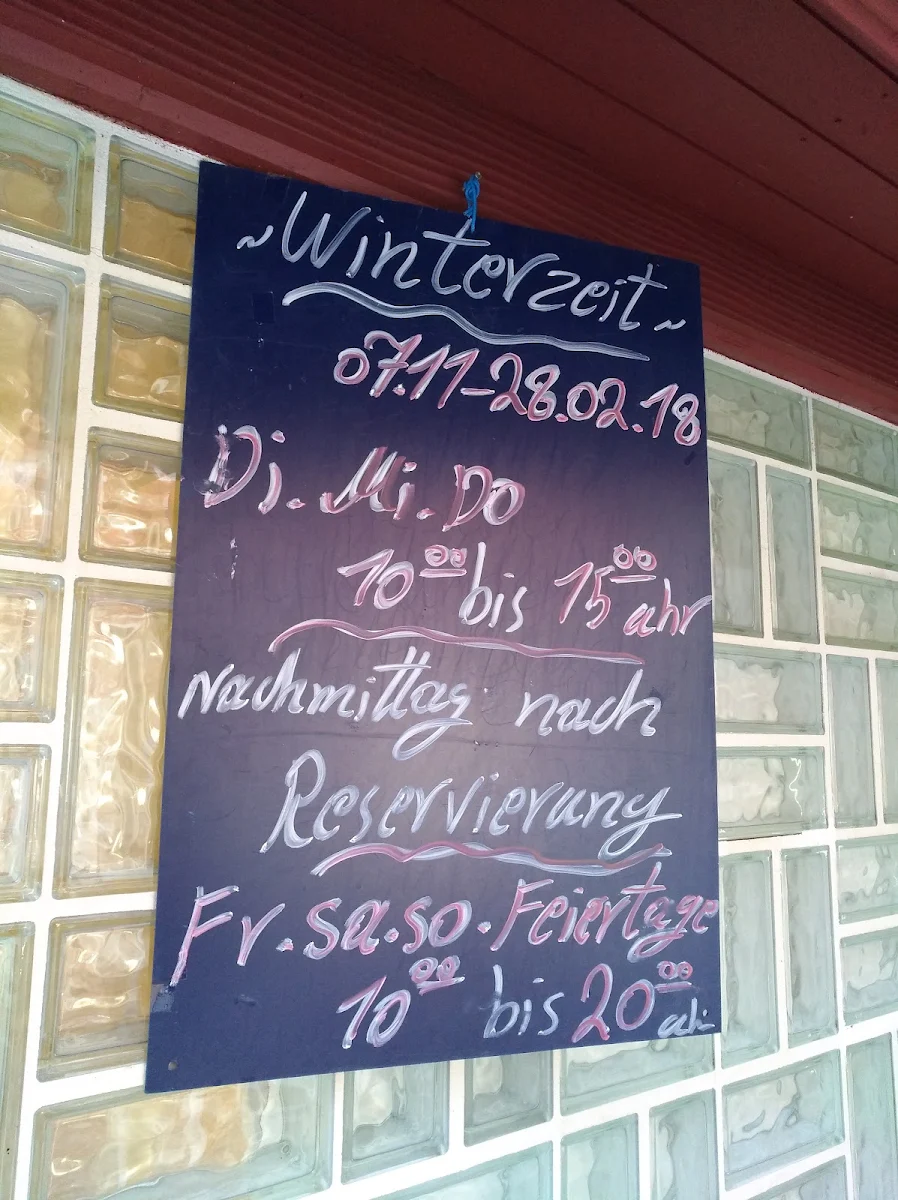 ~Winterzeit~
07.11-28.02.18
Di. Mi. Do
10 00 bis 15 00 uhr
Nachmittag nach
Reservierung
Fr. Sa. So. Feiertage
10 00 bis 20 00 uhr